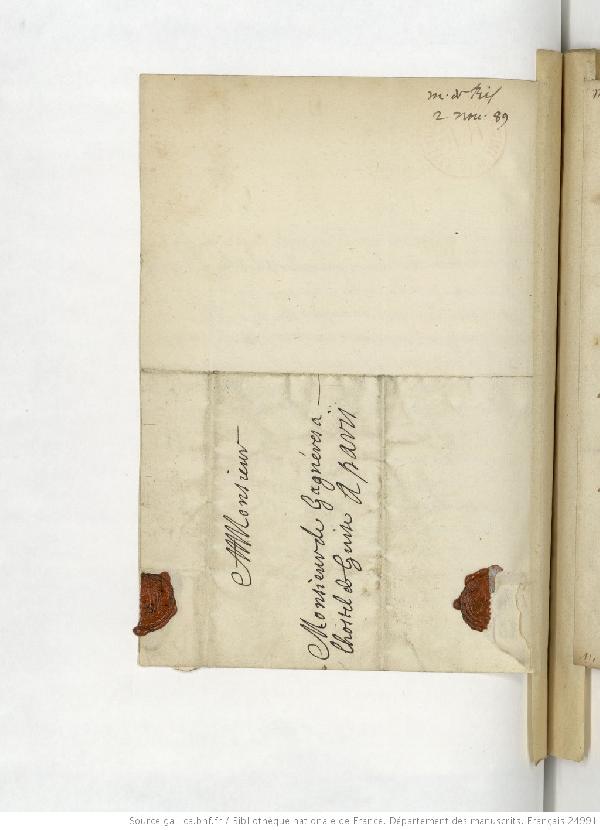 2. nou. 89
A Monsieur
Monsieur de Gagnieres a
lhostel de Guise A paris
Source gallica.bnf.fr / Bibliothèque nationale de France. Département des manuscrits. Français 24991